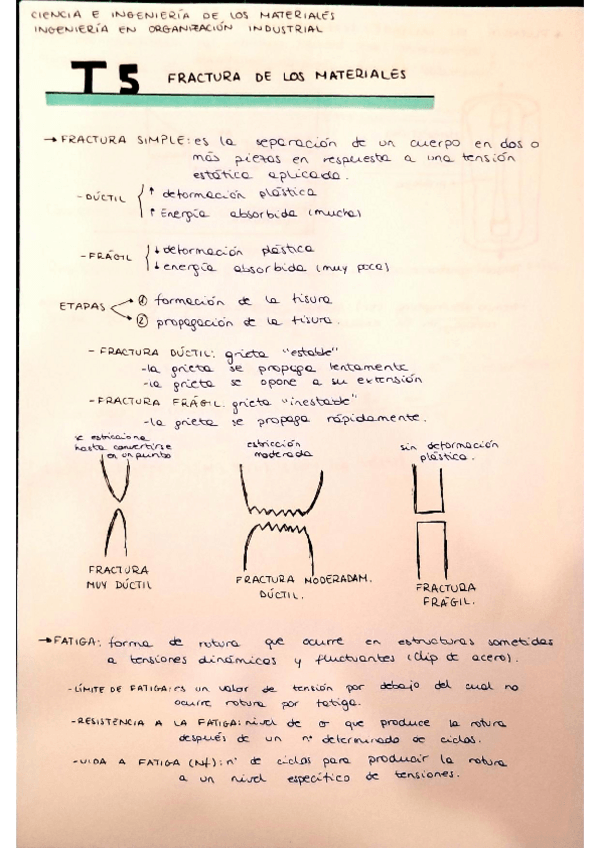 CIENCIA E INGENIERÍA DE LOS MATERIALES
INGENIERÍA EN ORGANIZACIÓN INDUSTRIAL
T5 FRACTURA DE LOS MATERIALES
→ FRACTURA SIMPLE: es la separación de un cuerpo en dos o
más piezas en respuesta a una tensión
estática aplicada.
- DÚCTIL { ↑ deformación plástica
↑ Energía absorbida (mucha)
- FRÁGIL { ↓ deformación plástica
↓ energía absorbida (muy poca)
ETAPAS ① formación de la fisura
② propagación de la fisura.
- FRACTURA DÚCTIL: grieta "estable"
- la grieta se propaga lentamente
- la grieta se opone a su extensión
- FRACTURA FRÁGIL: grieta "inestable"
- la grieta se propaga rápidamente.
se estricciona
hasta convertirse
en un punto
estricción
moderada
sin deformación
plástica.
FRACTURA
MUY DÚCTIL
FRACTURA MODERADAM.
DÚCTIL.
FRACTURA
FRÁGIL.
→ FATIGA: forma de rotura que ocurre en estructuras sometidas
a tensiones dinámicas y fluctuantes (clip de acero).
- LÍMITE DE FATIGA: es un valor de tensión por debajo del cual no
ocurre rotura por fatiga.
- RESISTENCIA A LA FATIGA: nivel de σ que produce la rotura
después de un nº determinado de ciclos.
- VIDA A FATIGA (Nf): nº de ciclos para producir la rotura
a un nivel específico de tensiones.